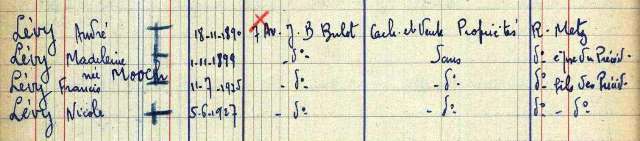 Lévy André 18-11-1890 7 Av. J. B Bulot Cach. et Vente Propriétés R. Metz
Lévy Madeleine 1-11-1899 - do - Sans do
née Mooch
Lévy Francis 11-7-1925 - do - - do do fils des Précéd.
Lévy Nicole 5.6.1927 - do - - do do - do